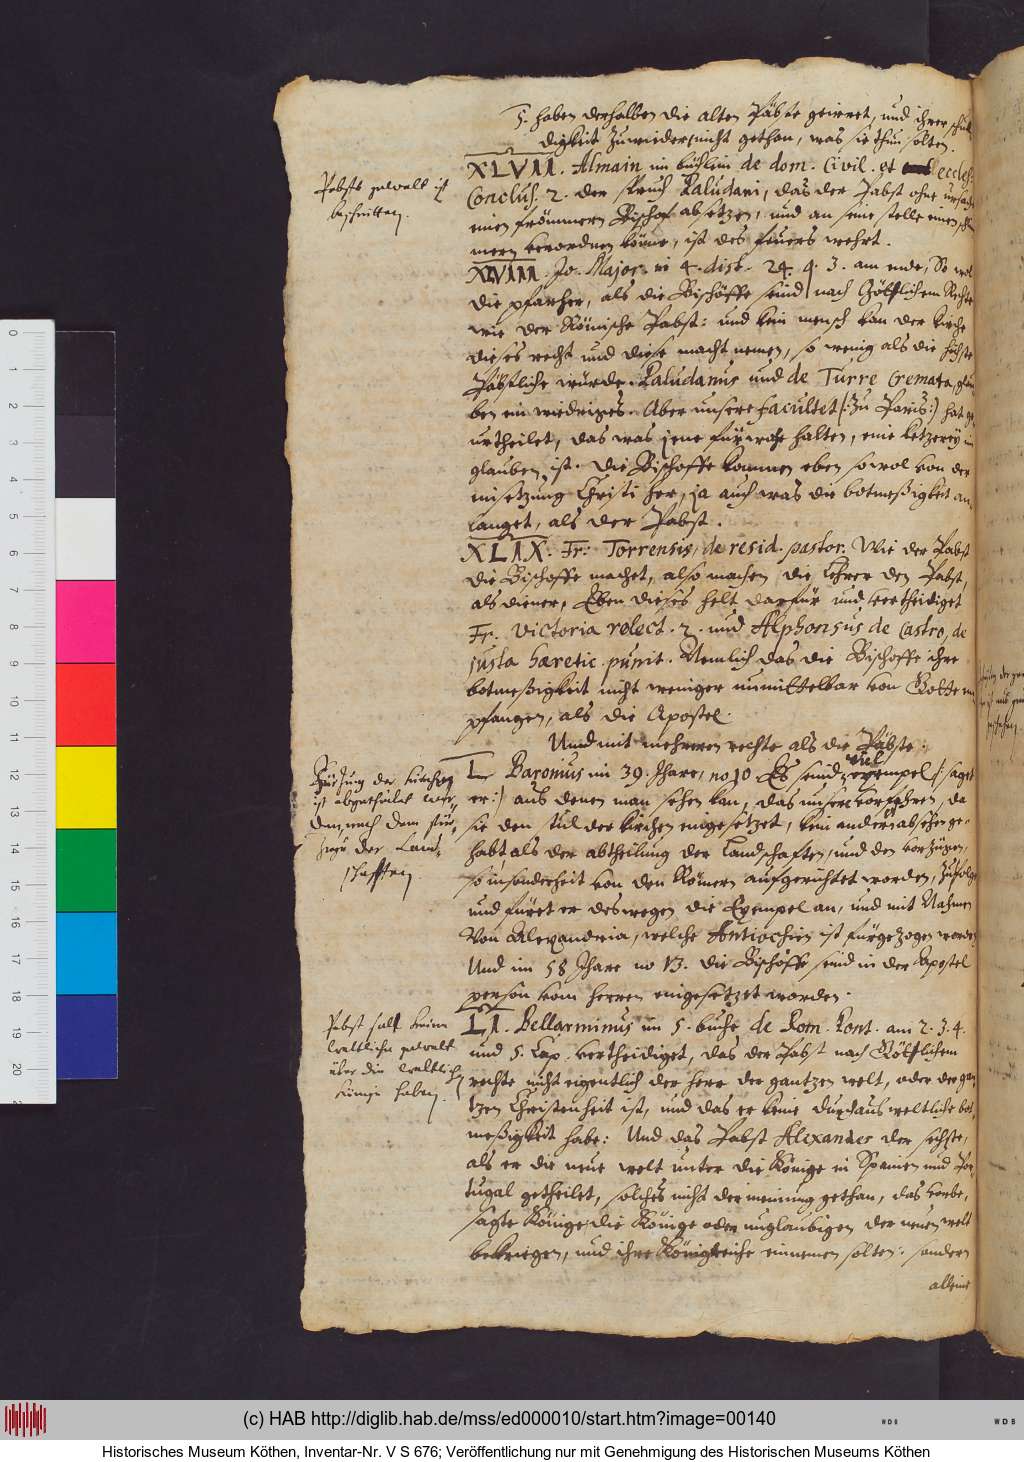 5. haben derhalben die alten Päbste geirret, und ihrer schul
digkeit zuwieder, nicht gethan, was sie thun solten.
XLVII. Almain im büchlin de dom. Civil. et eccles.
Conclus. 2. der spruch Paludani, das der Pabst ohne ursach
einen frömmern Bischof absetzen, und an seine stelle einen
mern verordnen könne, ist des feuers wehrt.
Pabsts gewalt ist
beschnitten.
XLVIII. Jo. Major. in 4. dist. 24. q. 3. am ende, So wol
die pfarher, als die Bischöffe seind nach Göttlichem Rechte
wie der Römische Pabst: und kein mensch kan der kirche
dieses recht und diese macht nemen, so wenig als die höchste
Päbstliche würde. Paludanus und de Turre Cremata, glau
ben ein wiedriges. Aber unsere Facultet (: zu Paris:) hat ge
urtheilet, das was jene für war halten, eine ketzerey im
glauben ist. die Bischoffe kommen eben sowol von der
einsetzung Christi her, ja auch was die botmeßigkeit an
langet, als der Pabst.
XLIX. Fr. Torrensis, de resid. pastor. Wie der Pabst
die Bischoffe machet, also machen die Lehrer den Pabst,
als diener, Eben dieses helt darfür und vertheidiget
Fr. Victoria relect. 2. und Alphonsus de Castro, de
justa hæretic. punit. Nemlich das die Bischoffe ihre
botmeßigkeit nicht weniger unmittelbar von Gotte em
pfangen, als die Apostel.
Und mit mehrern rechte als die Päbste.
L. Baronius im 39. Jhare, no 10 Es seind viel exempel (: saget
er:) aus denen man sehen kan, das unsere vorfahren, da
sie den stul der kirchen eingesetzet, kein anders absehen ge-
habt als der abtheilung der Landschaften, und den vorzügen,
so insonderheit von den Römern aufgerichtet worden, zufolgen
und füret er deswegen die Exempel an, und mit Nahmen
Von Alexandria, welche Antiochien ist fürgezogen worden
Und im 58 Jhare no 13. die Bischöffe seind in der Apostel
person vom herren eingesetzet worden.
der kirchen
ist abgetheilet wor,
den, nach dem für,
zuge der Land,
schafften
LI. Bellarminus im 5. buche de Rom. Pont. am 2. 3. 4.
und 5. Cap. vertheidiget, das der Pabst nach Göttlichem
rechte nicht eigentlich der herr der gantzen welt, oder der gan
tzen Christenheit ist, und das er keine durchaus weltliche bot
meßigkeit habe: Und das Pabst Alexander der sechste,
als er die neue welt unter die Könige in Spanien und Por
tugal getheilet, solches nicht der meinung gethan, das vorbe,
sagte Könige die Könige oder unglaubigen der neuen welt
bekriegen, und ihre Königreiche einnemen solten: sondern
alleine
Pabst soll keine
weltliche gewalt
über die weltlichen
Könige haben.
0
1
2
3
4
5
6
7
8
9
10
11
12
13
14
15
16
17
18
19
20
(c) HAB http://diglib.hab.de/mss/ed000010/start.htm?image=00140
WDB
WDB
Historisches Museum Köthen, Inventar-Nr. V S 676; Veröffentlichung nur mit Genehmigung des Historischen Museums Köthen